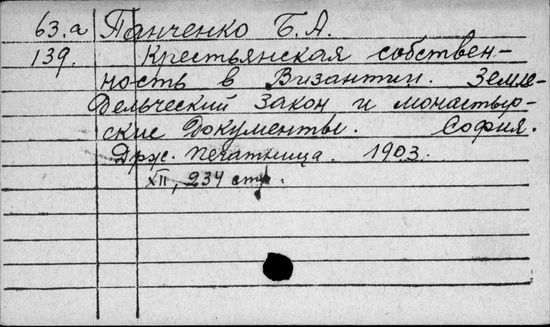 63.a Панченко Б.А.
139. Крестьянская собствен-
ность в Византии. Земле-
дельческий закон и монастыр-
ские документы. София.
Друж. печатница. 1903.
XII, 234 стр.